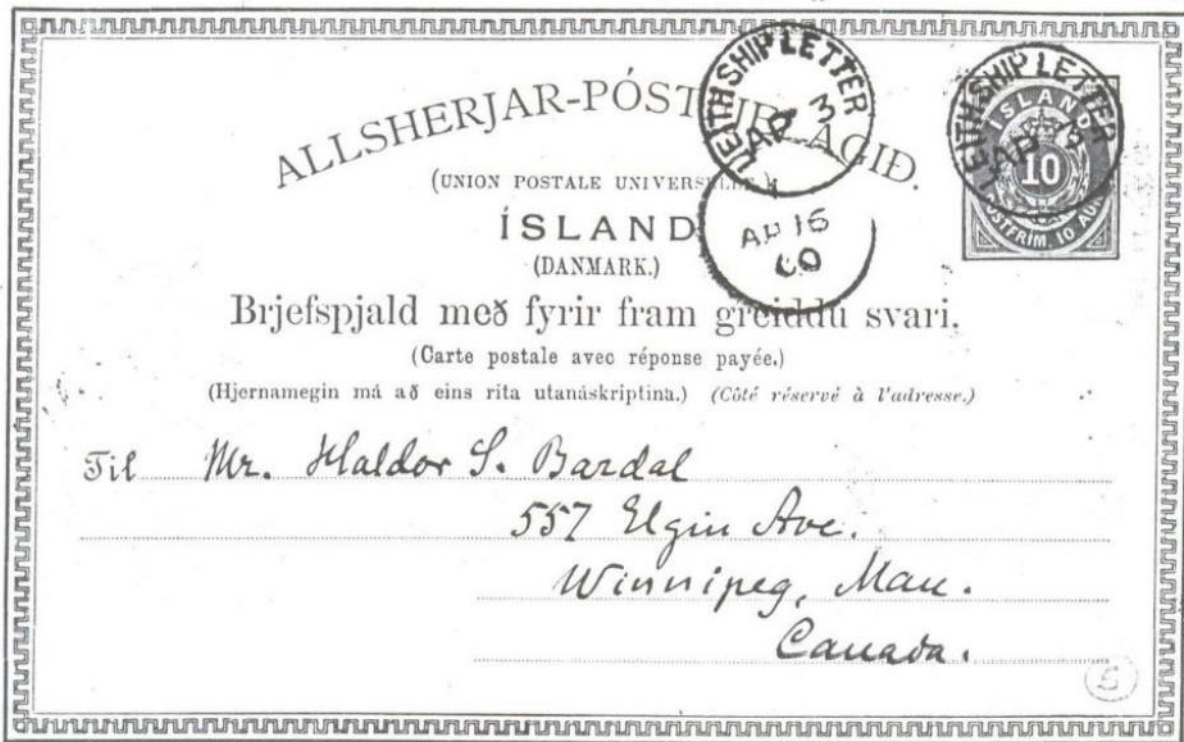 ALLSHERJAR-PÓST AGIÐ.
(UNION POSTALE UNIVERSELLE.)
ÍSLAND
(DANMARK.)
Brjefspjald með fyrir fram greiddu svari.
(Carte postale avec réponse payée.)
(Hjernamegin má að eins rita utanáskriptina.) (Côté réservé à l'adresse.)
LEITH SHIP LETTER
AP 3
AP 16
00
LEITH SHIP LETTER
AP 3
ÍSLAND
10
PÓSTFRÍM. 10 AUR.
Til Mr. Haldor S. Bardal
557 Elgin Ave.
Winnipeg, Man.
Canada.
S